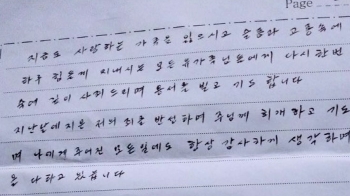 Page
지금도 사랑하는 가족을 잃으시고 슬픔과 고통속에
하루 힘들게 지내시는 모든 유가족분들에게 다시한번
숙여 깊이 사죄드리며 용서를 빌고 기도 합니다
지난날에 지은 저의 죄를 반성하며 주님께 회개하고 기도
며 나에게 주어진 모든일에도 항상 감사하게 생각하며
을 다하고 있습니다